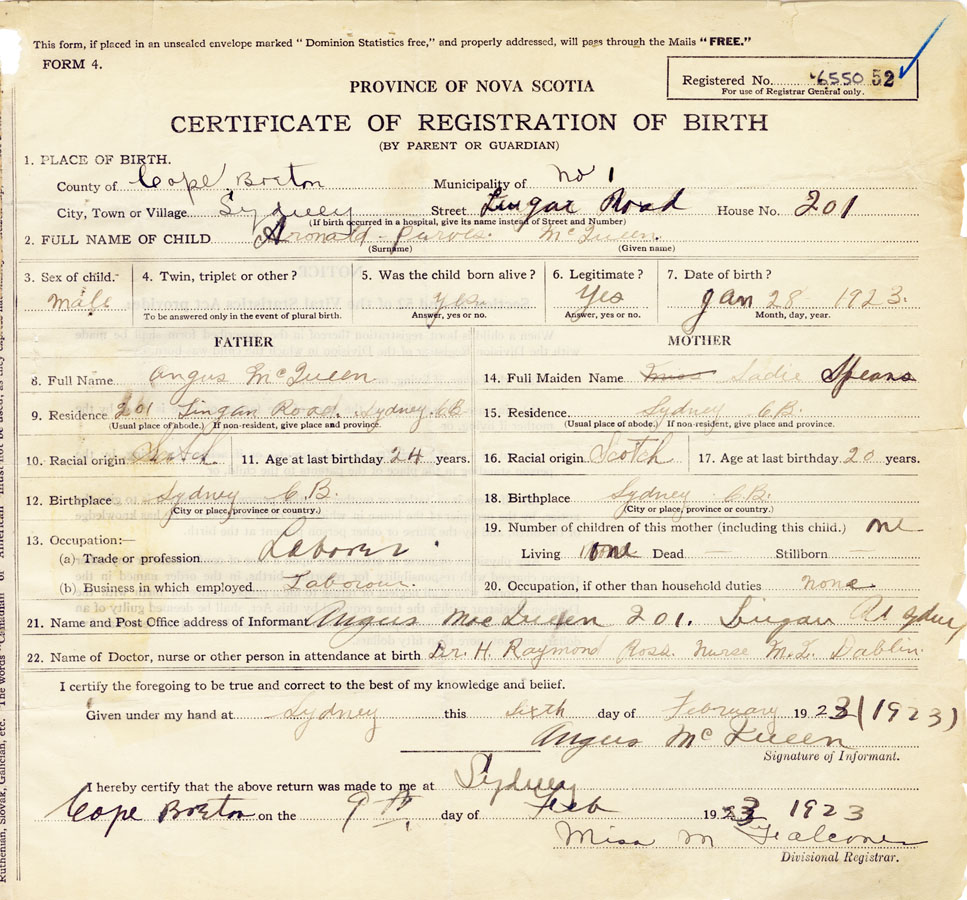 This form, if placed in an unsealed envelope marked "Dominion Statistics free," and properly addressed, will pass through the Mails "FREE."
FORM 4.
Registered No. 6550 52
For use of Registrar General only.
PROVINCE OF NOVA SCOTIA
CERTIFICATE OF REGISTRATION OF BIRTH
(BY PARENT OR GUARDIAN)
1. PLACE OF BIRTH.
County of Cape Breton Municipality of No 1
City, Town or Village Sydney Street Lingar Road House No. 201
(If birth occurred in a hospital, give its name instead of Street and Number)
2. FULL NAME OF CHILD Purves McQueen
(Surname) (Given name)
3. Sex of child. 4. Twin, triplet or other? 5. Was the child born alive? 6. Legitimate? 7. Date of birth?
Male Yes Yes Jan 28 1923.
To be answered only in the event of plural birth. Answer, yes or no. Answer, yes or no. Month, day, year.
FATHER MOTHER
8. Full Name Angus McQueen 14. Full Maiden Name Miss Sadie Spears
9. Residence 201 Lingan Road. Sydney. C.B 15. Residence. Sydney C.B.
(Usual place of abode.) If non-resident, give place and province. (Usual place of abode.) If non-resident, give place and province.
10. Racial origin Scotch 11. Age at last birthday 24 years. 16. Racial origin Scotch 17. Age at last birthday 20 years.
12. Birthplace Sydney C.B. 18. Birthplace Sydney C.B.
(City or place, province or country.) (City or place, province or country.)
19. Number of children of this mother (including this child.) one
13. Occupation:—
(a) Trade or profession Laborer Living one Dead — Stillborn —
(b) Business in which employed Labour. 20. Occupation, if other than household duties none
21. Name and Post Office address of Informant Angus MacQueen 201. Lingan Rd Sydney
22. Name of Doctor, nurse or other person in attendance at birth Dr. H. Raymond Ross. Nurse M.L. Dabblin.
I certify the foregoing to be true and correct to the best of my knowledge and belief.
Given under my hand at Sydney this Sixth day of February 1923 (1923)
Angus McQueen
Signature of Informant.
I hereby certify that the above return was made to me at Sydney
Cape Breton on the 9th day of Feb 1923 1923
Miss M Falconer
Divisional Registrar.
Ruthenian, Slovak, Galician, etc. The words "Canadian" or "American" must not be used, as they express